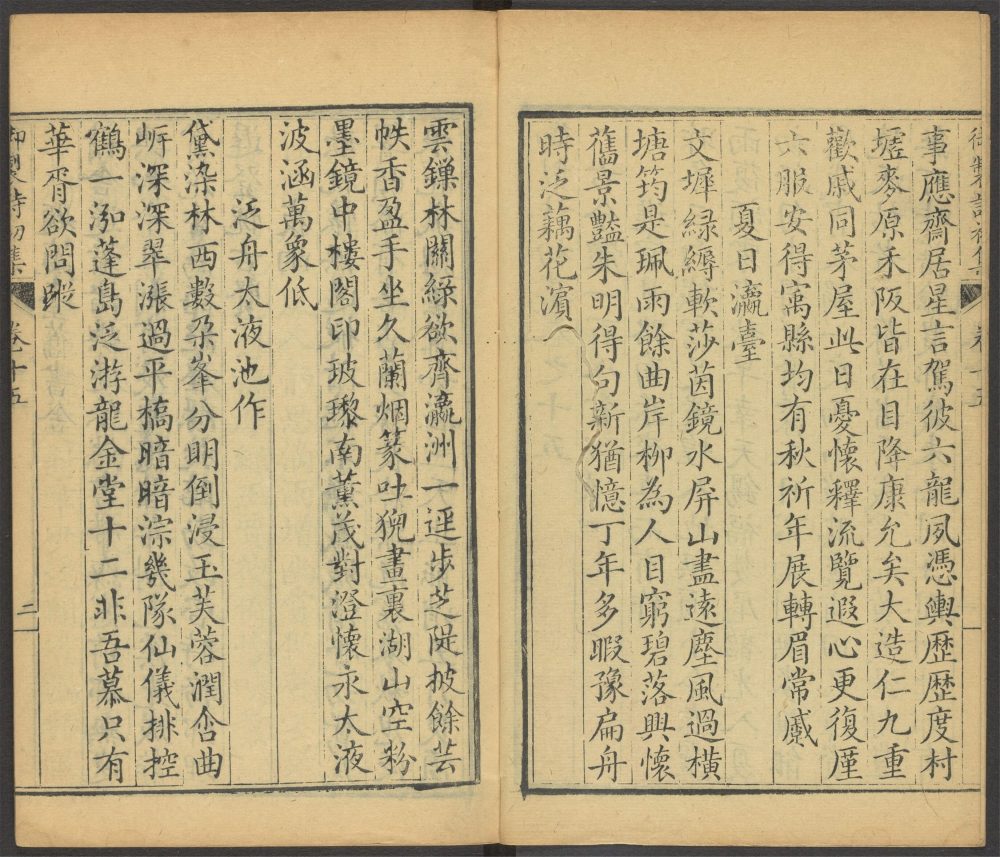 御製詩初集 卷十五
事應齋居星言駕彼六龍夙憑輿歷歷度村
墟麥原禾阪皆在目降康允矣大造仁九重
歡戚同茅屋此日憂懷釋流覽遐心更復厪
六服安得寓縣均有秋祈年展轉眉常蹙
夏日瀛臺
文墀綠縟軟莎茵鏡水屏山盡遠塵風過橫
塘筠是珮雨餘曲岸柳為人目窮碧落興懷
舊景豔朱明得句新猶憶丁年多暇豫扁舟
時泛藕花濱
雲鏁林關綠欲齊瀛洲一逕步芝隄披餘芸
帙香盈手坐久蘭烟篆吐猊畫裏湖山空粉
墨鏡中樓閣印玻瓈南薰茂對澄懷永太液
波涵萬象低
泛舟太液池作
黛染林西數朶峯分明倒浸玉芙蓉潤含曲
㟁深深翠漲過平橋暗暗淙幾隊仙儀排控
鶴一泓蓬島泛游龍金堂十二非吾慕只有
華胥欲問蹤
御製詩初集 卷十五 二